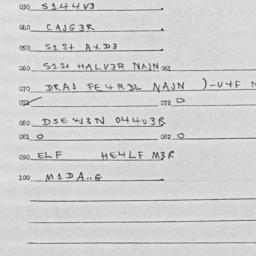 030 S144V3
040 CAJG3R
050 S1St AXD3
060 S1St HALV3R NAJN 061
070 DRAJ FE4R3L NAJN )-U4F
071 072 0
080 DSE WJ3N 044U3R
081 0 082 0
090 ELF HE4LF M3R
100 M1DA..G